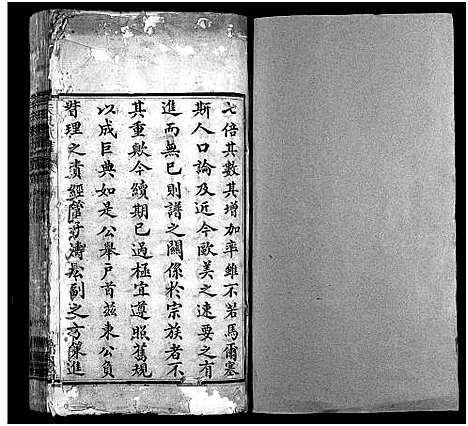 七倍其數其增加率雖不若馬爾塞
斯人口論及近今歐美之速要之有
進而無已則譜之關係於宗族者不
其重歟今續期已過極宜遵照舊規
以成巨典如是公舉戶首茲東公負
督理之責經管寿濤公副之彙進